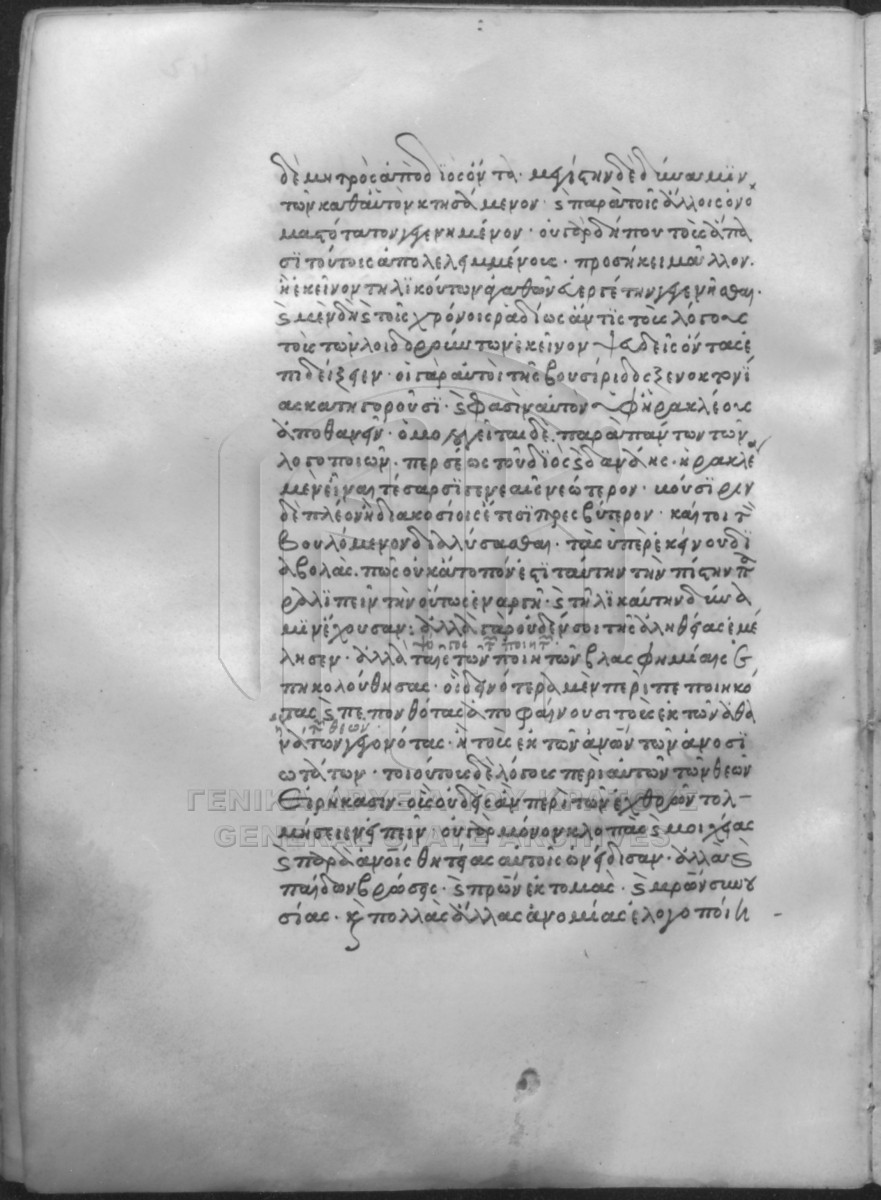 δὲ μητρὸς ἀπὸ διὸς ὄντα· μεγίστην δὲ δύναμιν
τῶν καθ' αὑτὸν κτησάμενον· καὶ παρὰ τοῖς ἄλλοις ὀνο
μαστότατον γεγενημένον· οὐ γὰρ δήπου τοῖς ἅπα
σι τούτοις ἀπολελειμμένους· προσήκει μᾶλλον.
ἢ ἐκεῖνον τηλικούτων ἀγαθῶν εὐεργέτην γεγενῆσθαι·
καὶ μὲν δὴ καὶ τοῖς χρόνοις ῥαδίως ἄν τις τοὺς λόγους
τοὺς τῶν λοιδορούντων ἐκεῖνον ψευδεῖς ὄντας ἐ
πιδείξειεν· οἱ γὰρ αὐτοὶ τῆς βουσίριδος ξενοκτονί
ας κατηγοροῦσι· καὶ φασὶν αὐτὸν ὑφ' ἡρακλέους
ἀποθανεῖν· ὁμολογεῖται δὲ παρὰ πάντων τῶν
λογοποιῶν· περσέως τοῦ διὸς καὶ δανάης· ἡρακλέα
μὲν εἶναι τέσαρσι γενεαῖς νεώτερον· βούσιριν
δὲ πλέον ἢ διακοσίοις ἔτεσι πρεσβύτερον· καίτοι τὸν
βουλόμενον διαλύσασθαι· τὰς ὑπὲρ ἐκείνου δι
αβολὰς. πῶς οὐκ ἄτοπόν ἐστι ταύτην τὴν πίστιν πα
ραλιπεῖν τὴν οὕτως ἐναργῆ· καὶ τηλικαύτην δύνα
μιν ἔχουσαν· ἀλλὰ γὰρ οὐδέν σοι τῆς ἀληθείας ἐμέ
ψόγος τῶν ποιητῶν
λησεν· ἀλλὰ ταῖς τῶν ποιητῶν βλασφημίαις ἐ
πηκολούθησας· οἳ δεινότερα μὲν περὶ πεποιηκό
τας καὶ πεπονθότας ἀποφαίνουσι τοὺς ἐκ τῶν ἀθα
τῶν θεῶν
νάτων γεγονότας· ἢ τοὺς ἐκ τῶν ἀνθρώπων τῶν ἀνοσι
ωτάτων· τοιούτους δὲ λόγους περὶ αὐτῶν τῶν θεῶν
εἰρήκασιν· οἵους οὐδεὶς ἂν περὶ τῶν ἐχθρῶν τολ-
μήσειεν εἰπεῖν· οὐ γὰρ μόνον κλοπὰς καὶ μοιχείας
καὶ παρὰ ἀνθρώποις θητείας αὐτοῖς ὠνείδισαν· ἀλλὰ καὶ
παίδων βρώσεις· καὶ πατέρων ἐκτομὰς· καὶ μητέρων συνου
σίας· καὶ πολλὰς ἄλλας ἀνομίας ἐλογοποίη-
ΓΕΝΙΚΑ ΑΡΧΕΙΑ ΤΟΥ ΚΡΑΤΟΥΣ
GENERAL STATE ARCHIVES